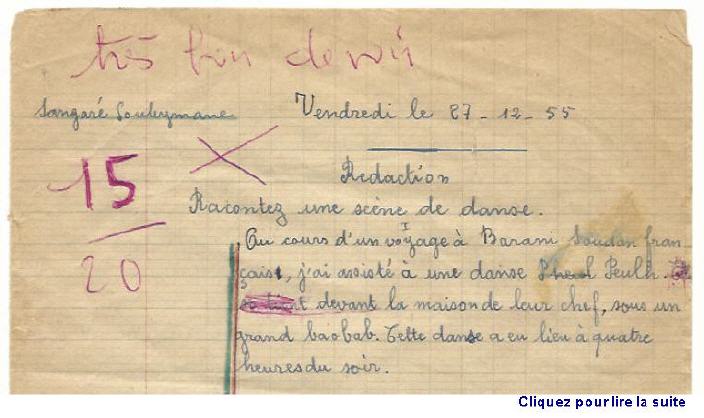 très bon devoir
Sangaré Souleymane
Vendredi le 27-12-55
15
20
Redaction
Racontez une scène de danse.
Au cours d'un voyage à Barani Soudan fran-
çais, j'ai assisté à une danse Peulh.
devant la maison de leur chef, sous un
grand baobab. Cette danse a eu lieu à quatre
heures du soir.
Cliquez pour lire la suite